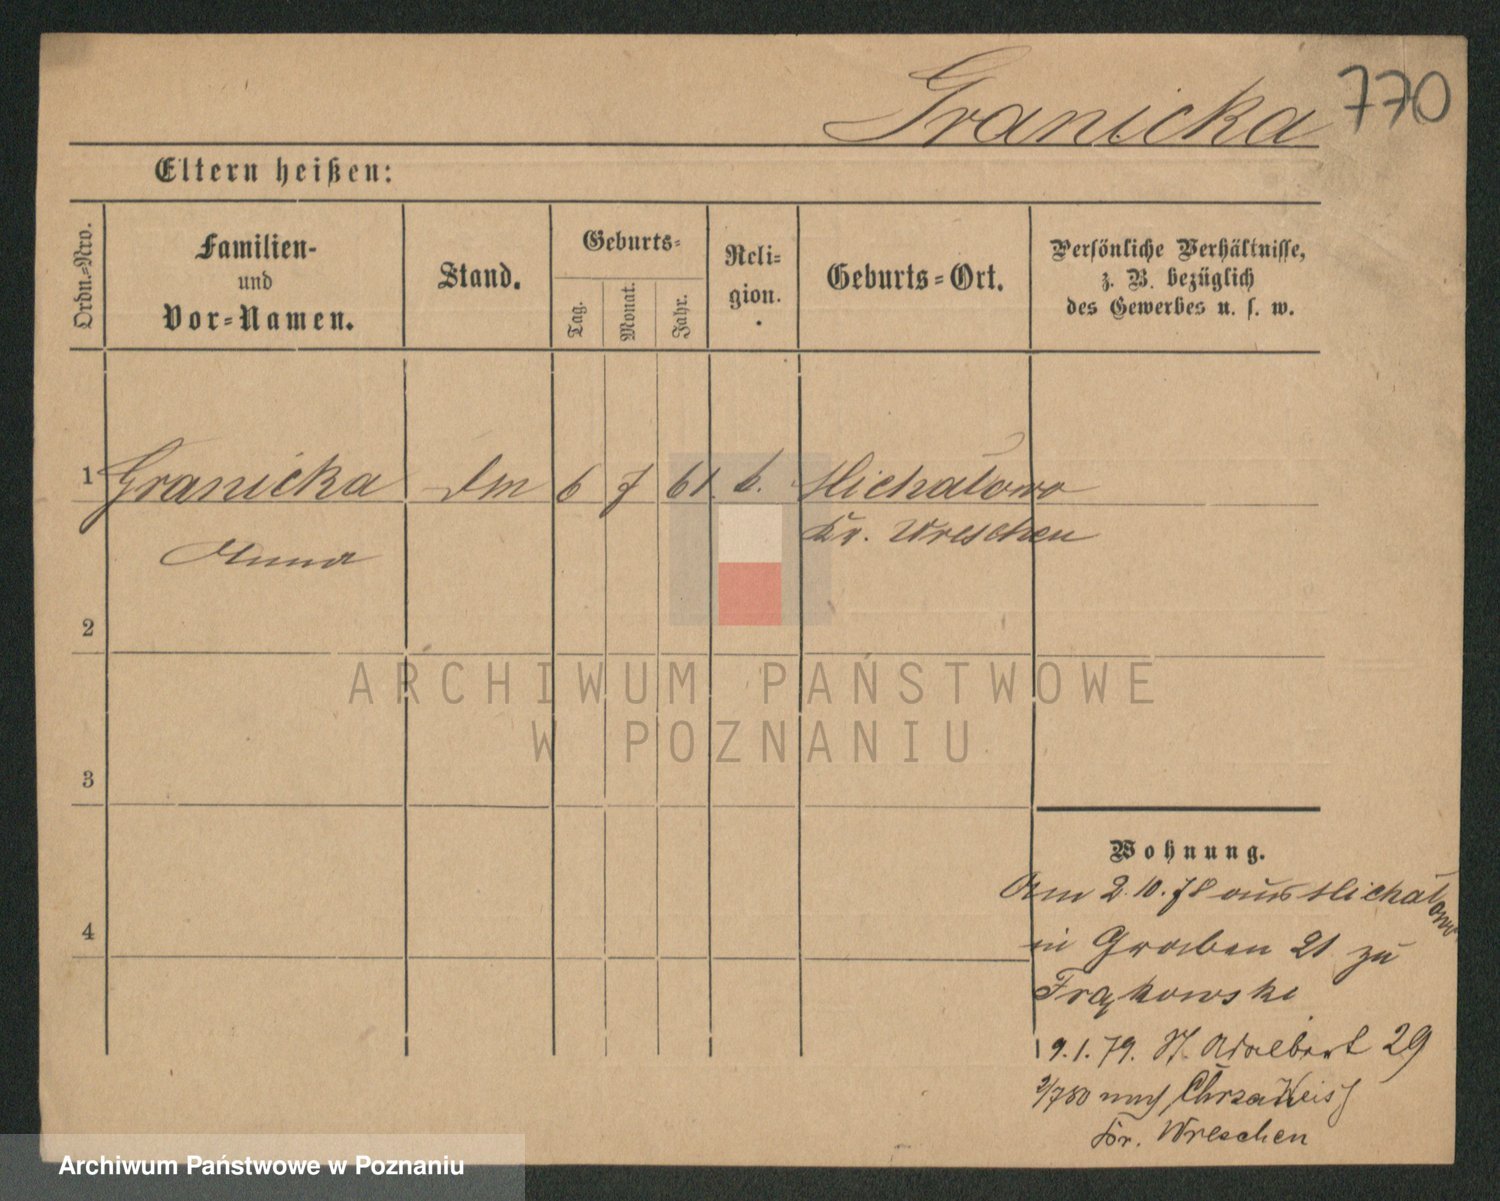 Granicka 770
Eltern heißen:
Ordn.-Nro.
Familien-
und
Vor-Namen.
Stand.
Geburts-
Tag.
Monat.
Jahr.
Reli-
gion.
Geburts-Ort.
Persönliche Verhältnisse,
z. B. bezüglich
des Gewerbes u. s. w.
1 Granicka 6 7 61 Michałowo
Kr. Wreschen
Anna
2
3
4
Wohnung.
Am 2.10.78 aus Michałowo
in Graben 21 zu
Frąkowski
9.1.79. St. Adalbert 29
2/7 80 nach
Kr. Wreschen
ARCHIWUM PAŃSTWOWE
W POZNANIU
Archiwum Państwowe w Poznaniu